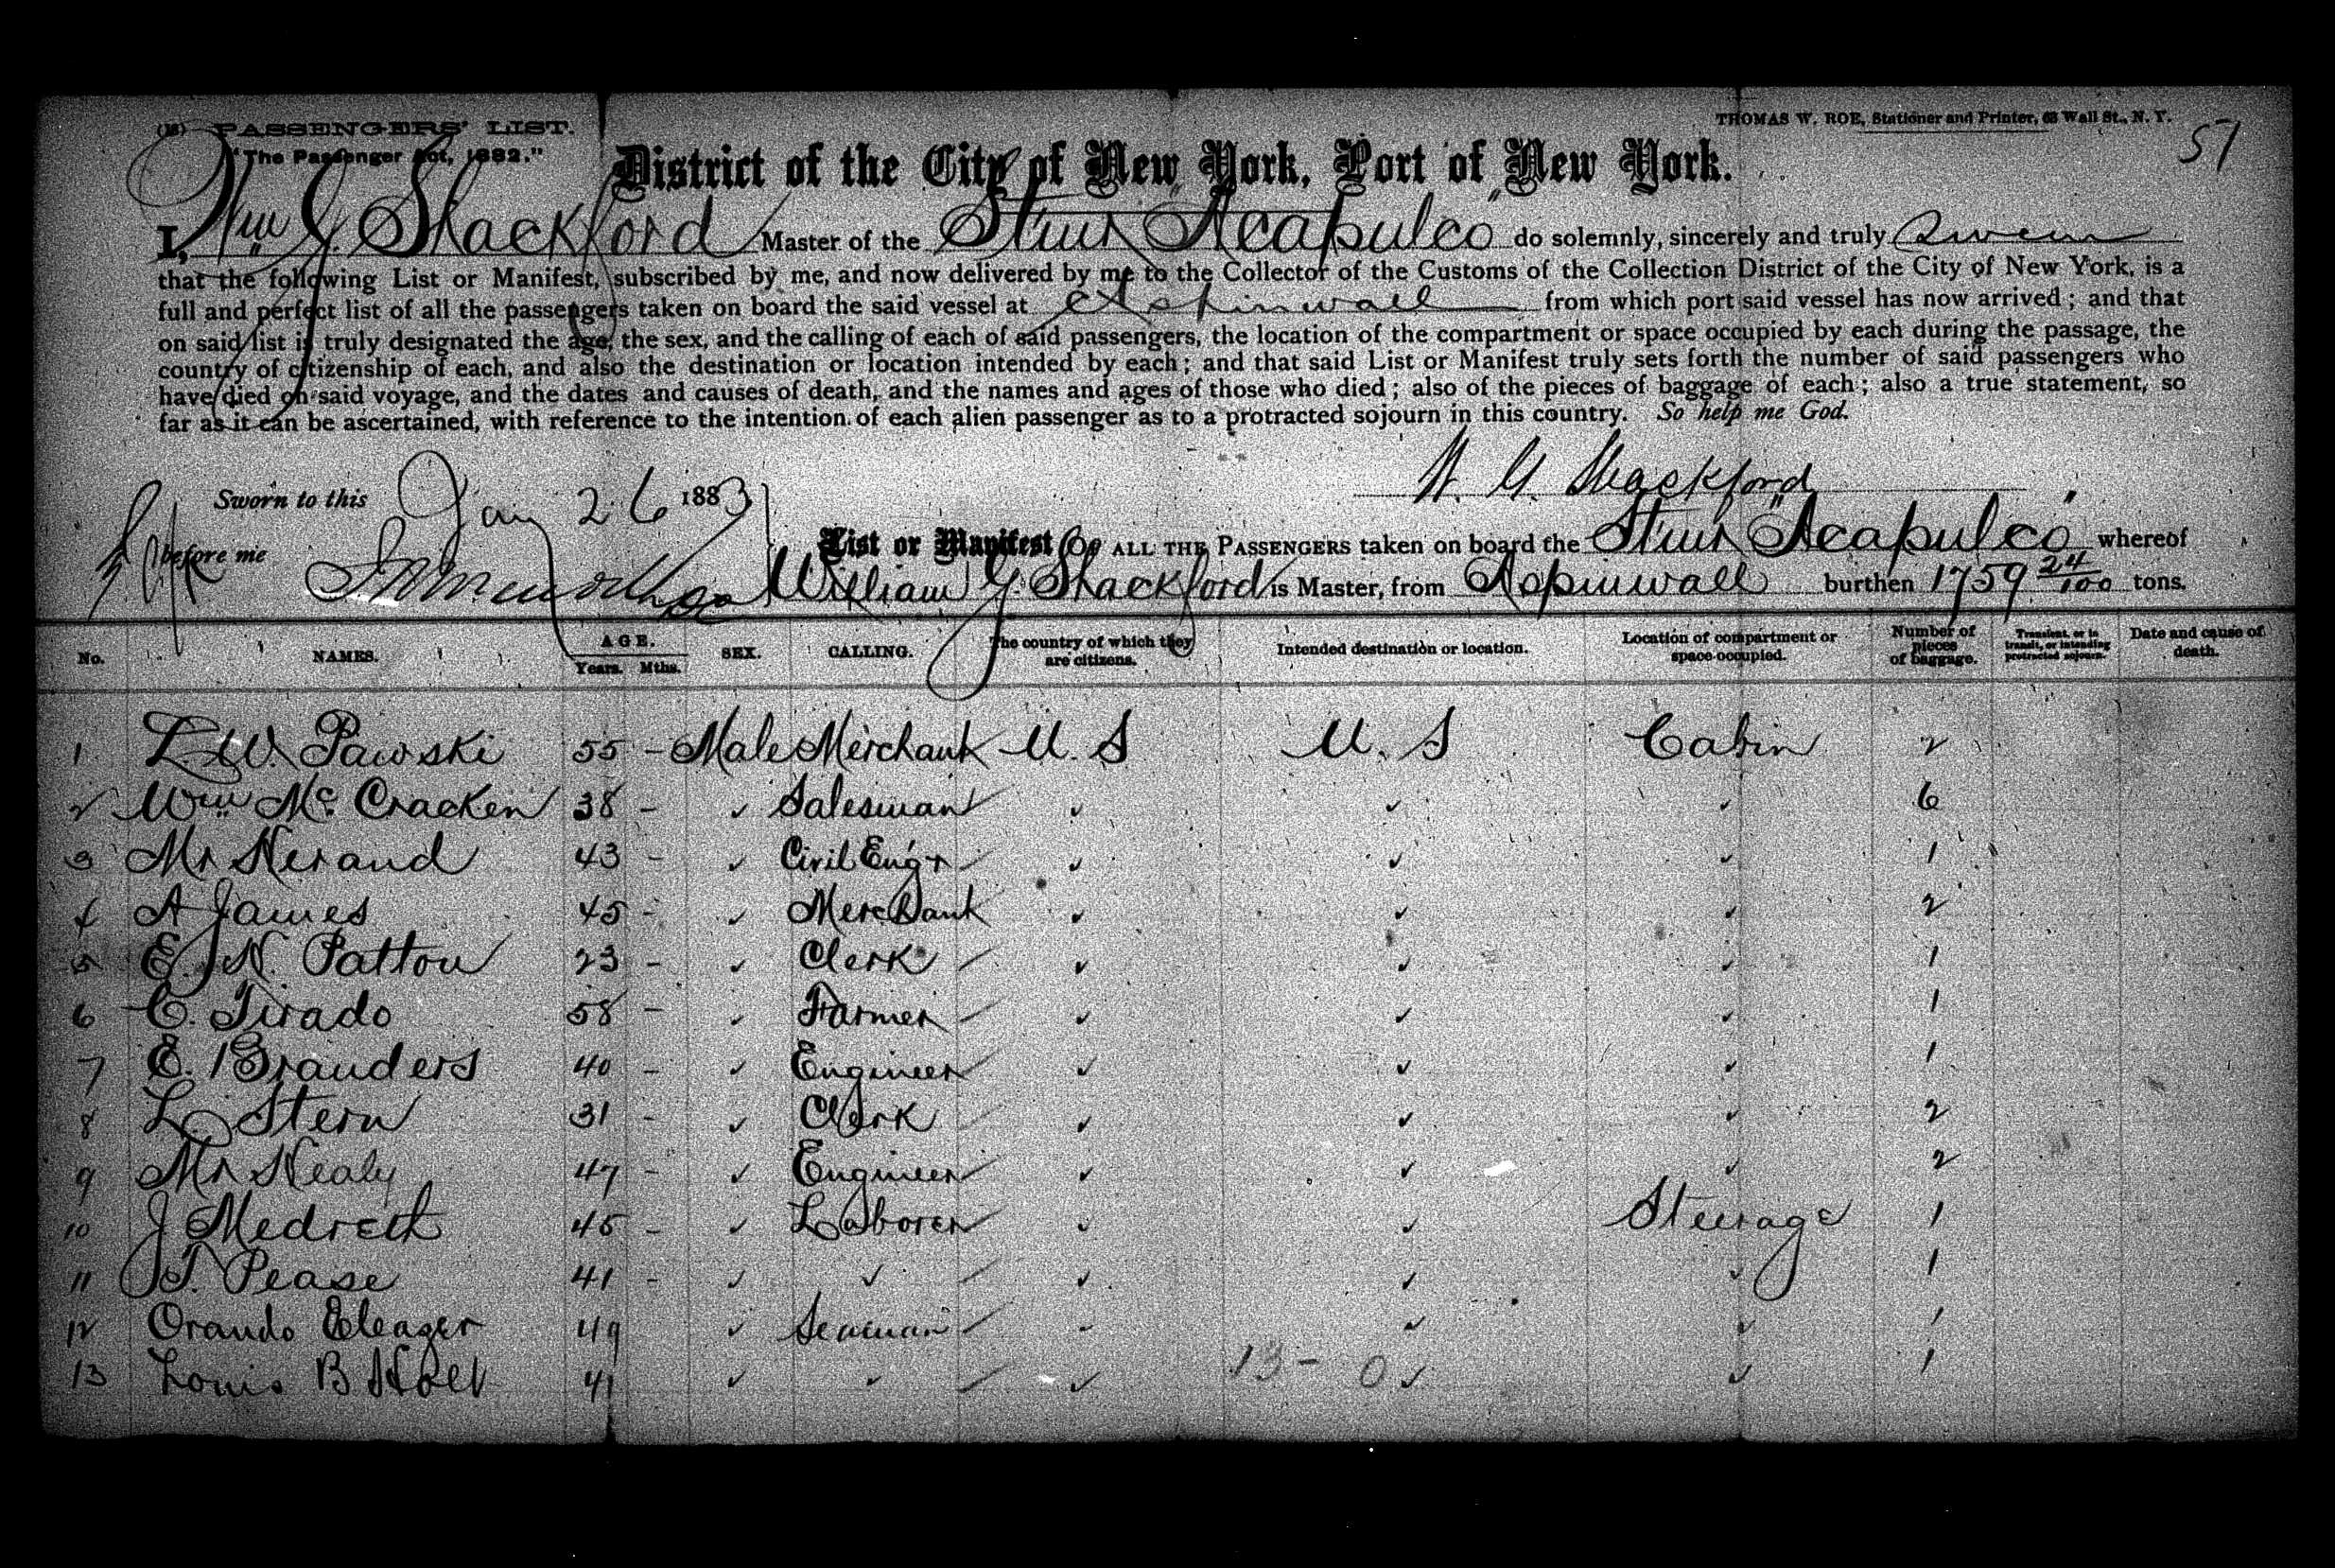 (18) PASSENGERS' LIST.
THOMAS W. ROE, Stationer and Printer, 63 Wall St., N. Y.
"The Passenger Act, 1882."
57
District of the City of New York, Port of New York.
I, Wm G. Shackford Master of the Stmr "Acapulco" do solemnly, sincerely and truly Swear
that the following List or Manifest, subscribed by me, and now delivered by me to the Collector of the Customs of the Collection District of the City of New York, is a
full and perfect list of all the passengers taken on board the said vessel at Aspinwall from which port said vessel has now arrived; and that
on said list is truly designated the age, the sex, and the calling of each of said passengers, the location of the compartment or space occupied by each during the passage, the
country of citizenship of each, and also the destination or location intended by each; and that said List or Manifest truly sets forth the number of said passengers who
have died on said voyage, and the dates and causes of death, and the names and ages of those who died; also of the pieces of baggage of each; also a true statement, so
far as it can be ascertained, with reference to the intention of each alien passenger as to a protracted sojourn in this country. So help me God.
W. G. Shackford
Sworn to this Jany 26 1883
before me
List or Manifest OF ALL THE PASSENGERS taken on board the Stmr "Acapulco" whereof
William G. Shackford is Master, from Aspinwall burthen 1759 24/100 tons.
No. NAMES. AGE. Years. Mths. SEX. CALLING. The country of which they are citizens. Intended destination or location. Location of compartment or space occupied. Number of pieces of baggage. Transient, or in transit, or intending protracted sojourn. Date and cause of death.
1 L. W. Pawski 55 - Male Merchant U. S U. S Cabin 2
2 Wm Mc Cracken 38 - ✓ Salesman ✓ ✓ ✓ 6
3 Mr Herand 43 - ✓ Civil Engr ✓ ✓ ✓ 1
4 A James 45 - ✓ Merchant ✓ ✓ ✓ 2
5 E. N. Patton 23 - ✓ Clerk ✓ ✓ ✓ 1
6 C. Tirado 58 - ✓ Farmer ✓ ✓ ✓ 1
7 E. Branders 40 - ✓ Engineer ✓ ✓ ✓ 1
8 L. Stern 31 - ✓ Clerk ✓ ✓ ✓ 2
9 Mr Nealy 47 - ✓ Engineer ✓ ✓ ✓ 2
10 J Medreth 45 - ✓ Laborer ✓ ✓ Steerage 1
11 T. Pease 41 - ✓ ✓ ✓ ✓ ✓ 1
12 Orando Eleager 49 ✓ Seaman ✓ ✓ ✓ 1
13 Louis B 41 ✓ ✓ ✓ 13 - 0 ✓ ✓ 1